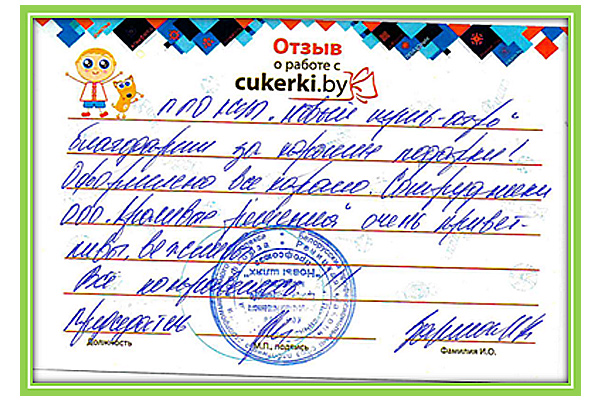 Отзыв
о работе с
cukerki.by
ППО КСУП „Новый шлях-агро"
благодарит за хорошие подарки!
Оформлено все хорошо. Сотрудники
ООО „Красивые решения" очень привет-
ливы, вежливы.
Все понравилось.
Председатель
Должность
М.П., подпись
Фамилия И.О.